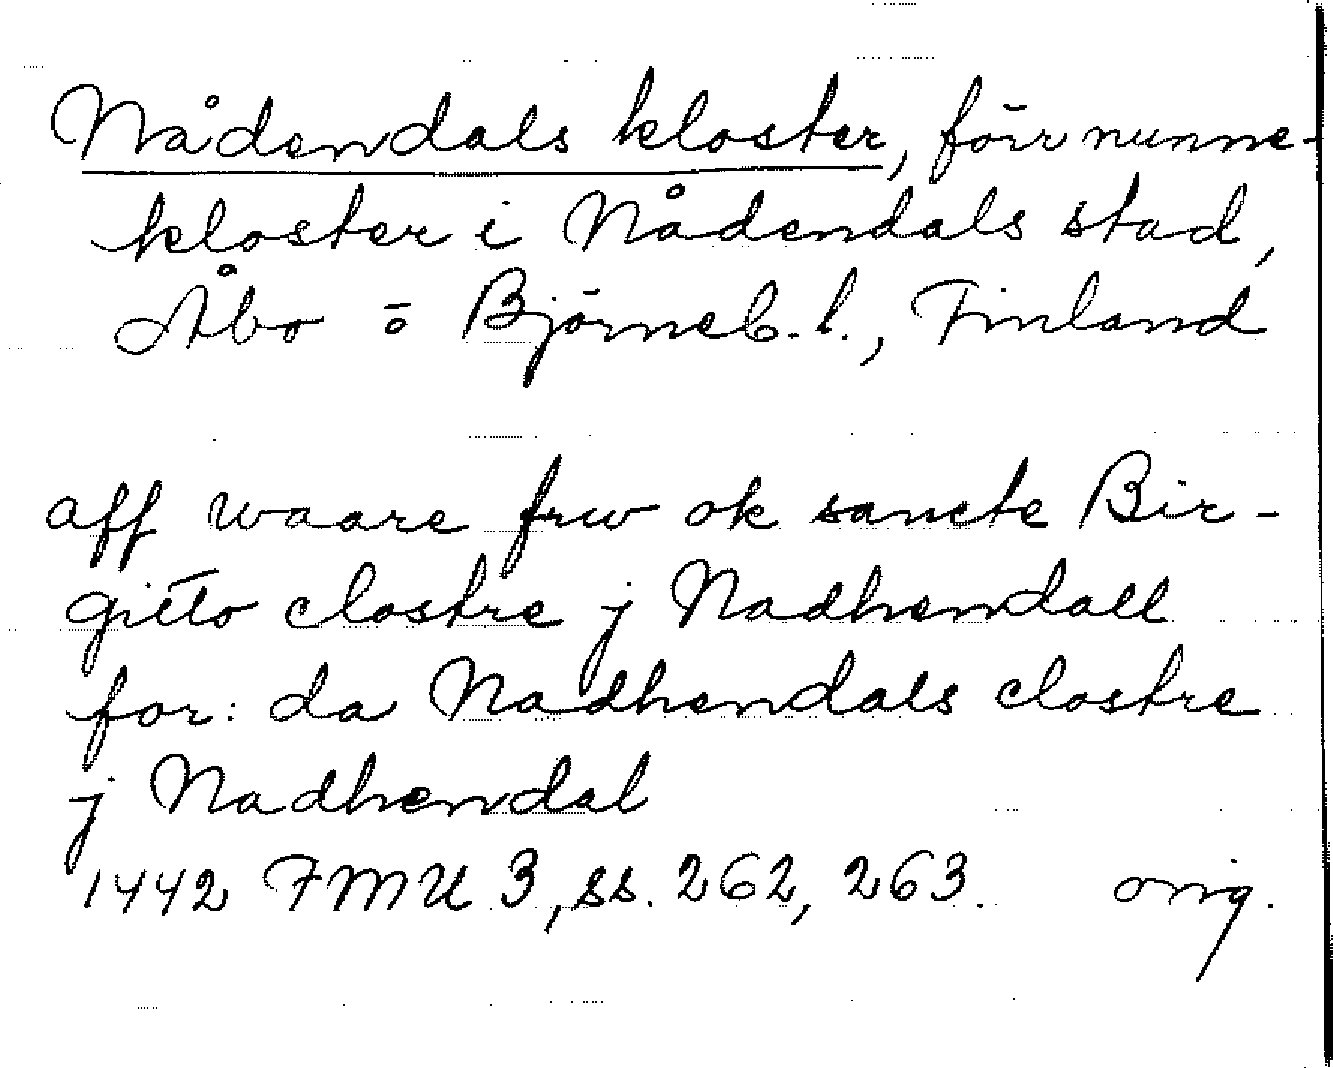 Nådendals kloster, förr nunne-
kloster i Nådendals stad,
Åbo o Björneb. l., Finland
aff waare frw ok sancte Bir-
gitto clostre j Nadhendall
for: da Nadhendals clostre
j Nadhendal
1442 FMU 3, ss. 262, 263. orig.